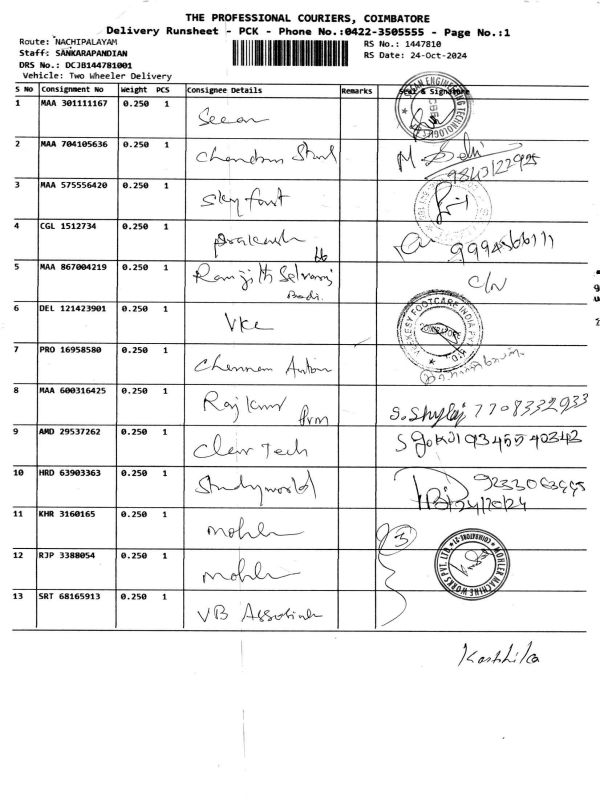 THE PROFESSIONAL COURIERS, COIMBATORE
Delivery Runsheet - PCK - Phone No.:0422-3505555 - Page No.:1
Route: NACHIPALAYAM
Staff: SANKARAPANDIAN
DRS No.: DCJB144781001
Vehicle: Two Wheeler Delivery
RS No.: 1447810
RS Date: 24-Oct-2024
S No Consignment No Weight PCS Consignee Details Remarks Seal & Signature
1 MAA 301111167 0.250 1
2 MAA 704105636 0.250 1 9843122925
3 MAA 575556420 0.250 1 Sky
4 CGL 1512734 0.250 1 Prakash 9994566111
5 MAA 867004219 0.250 1 Ramjith Selvaraj
6 DEL 121423901 0.250 1 VKC
VEEKESY FOOTCARE INDIA PVT. LTD.
7 PRO 16958580 0.250 1
8 MAA 600316425 0.250 1 Rajkumar 7708332933
9 AMD 29537262 0.250 1 Clear Tech
10 HRD 63903363 0.250 1 Studyworld 24/10/24
11 KHR 3160165 0.250 1 Mohler 3
12 RJP 3388054 0.250 1 Mohler
MOHLER MACHINE WORKS PVT. LTD.
13 SRT 68165913 0.250 1 VB
Karthika